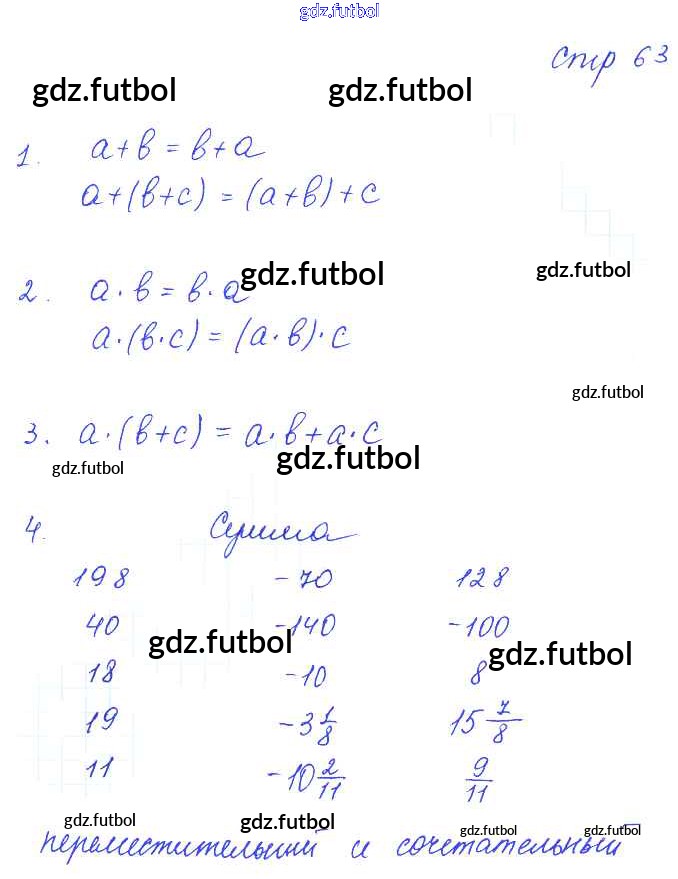 gdz.futbol
Стр 63
gdz.futbol gdz.futbol
1. a+b = b+a
a+(b+c) = (a+b)+c
gdz.futbol gdz.futbol
2. a·b = b·a
a·(b·c) = (a·b)·c
gdz.futbol
3. a·(b+c) = a·b+a·c
gdz.futbol gdz.futbol
4. Сумма
198 -70 128
40 -140 -100
gdz.futbol gdz.futbol
18 -10 8
19 -3 1/8 15 7/8
11 -10 2/11 9/11
gdz.futbol gdz.futbol gdz.futbol gdz.futbol
переместительный и сочетательный